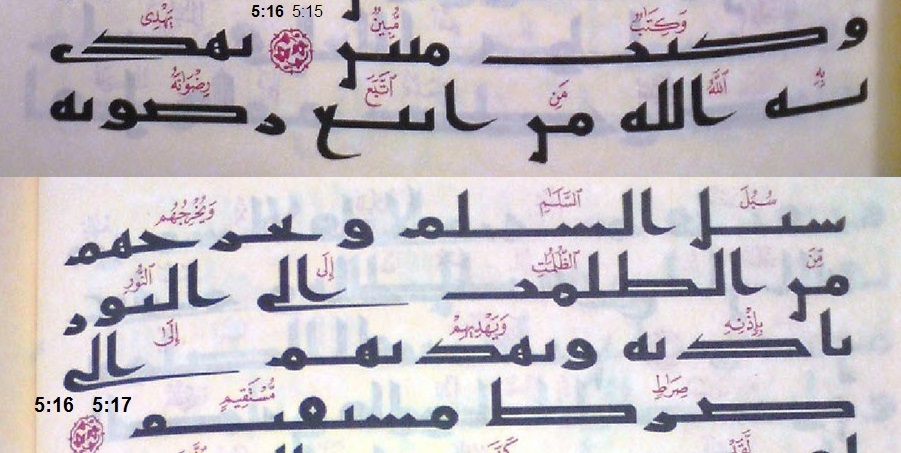 5:16 5:15
وَكِتَٰبٌ مُّبِينٌ يَهْدِى
وكتب مبين يهدى
بِهِ ٱللَّهُ مَنِ ٱتَّبَعَ رِضْوَٰنَهُ
به الله من اتبع رضونه
سُبُلَ ٱلسَّلَٰمِ وَيُخْرِجُهُم
سبل السلم ويخرجهم
مِّنَ ٱلظُّلُمَٰتِ إِلَى ٱلنُّورِ
من الظلمت الى النور
بِإِذْنِهِ وَيَهْدِيهِمْ إِلَىٰ
باذنه ويهديهم الى
صِرَٰطٍ مُّسْتَقِيمٍ
صرط مستقيم
5:16 5:17
لَّقَدْ